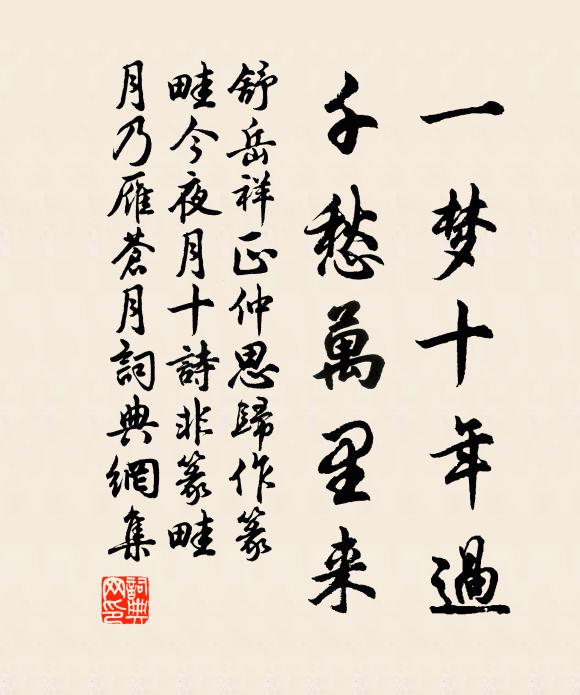 一梦十年過
千愁萬里来
舒岳祥正仲思歸作篆
畦今夜月十詩非篆畦
月乃雁蒼月詞典網集
詞典
网印